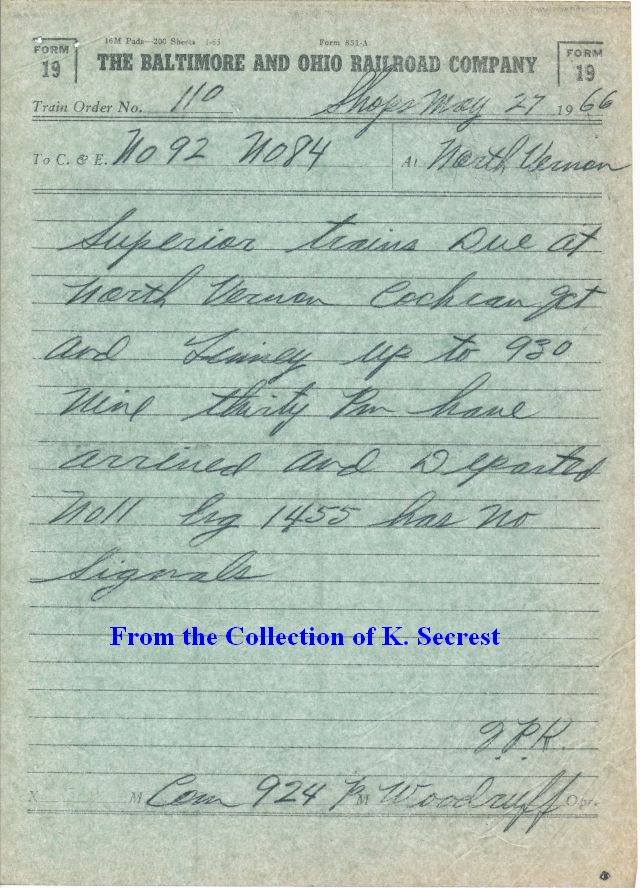 16M Pads—200 Sheets 1-65 Form 851-A
FORM 19 THE BALTIMORE AND OHIO RAILROAD COMPANY FORM 19
Train Order No. 110 Shops May 27 1966
To C. & E. No 92 No 84 At North Vernon
Superior trains Due at
North Vernon Cochran Jct
and up to 930
Nine thirty Pm have
arrived and Departed
No 11 Eng 1455 has no
signals
From the Collection of K. Secrest
J.P.K.
M Com 924 P M Woodruff Opr.